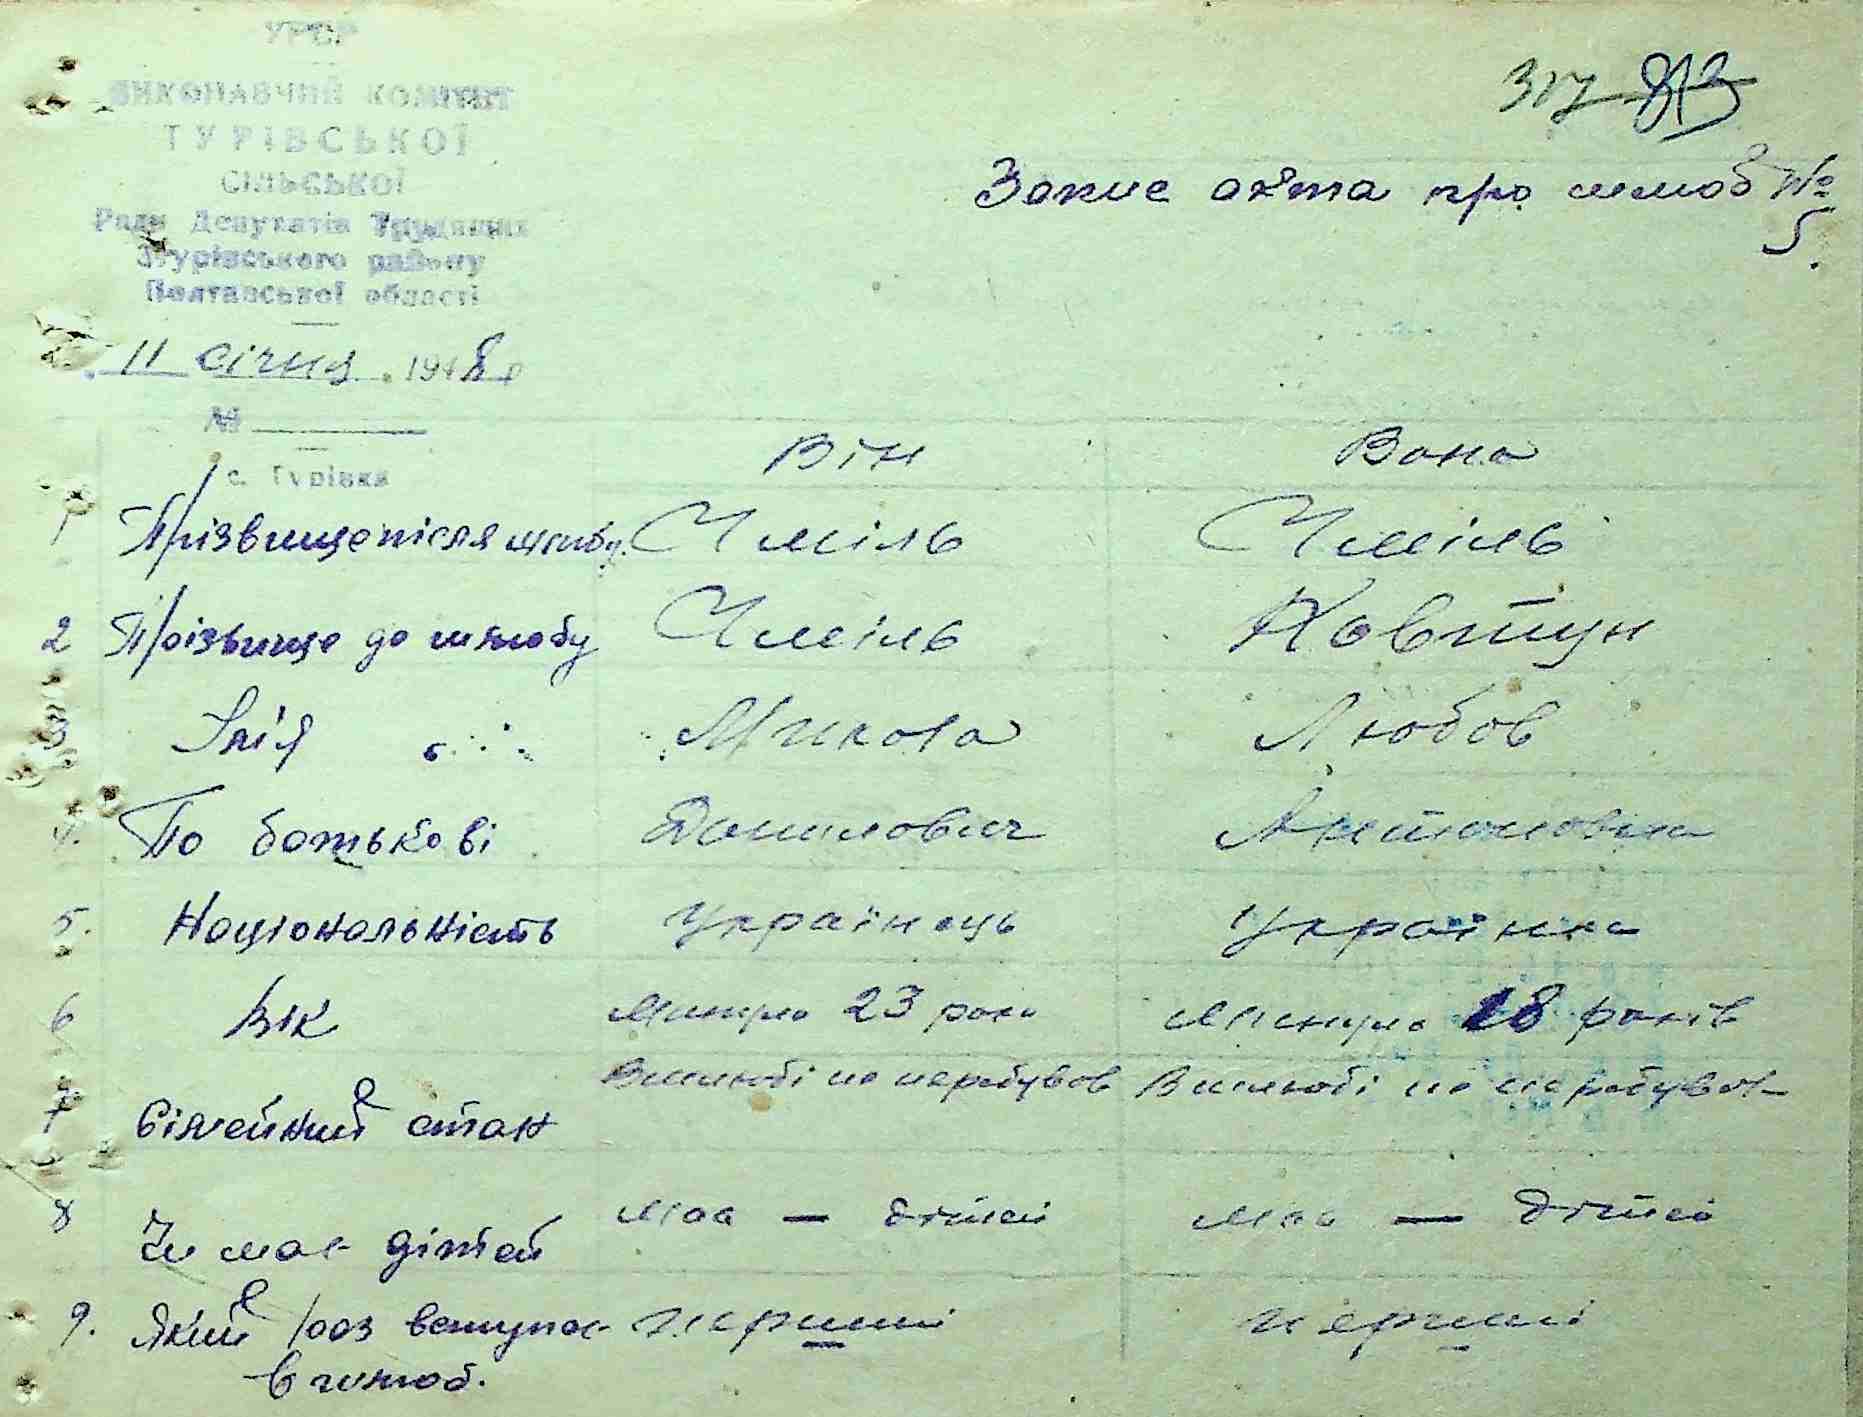 УРСР
ВИКОНАВЧИЙ КОМІТЕТ
ТУРІВСЬКОЇ
СІЛЬСЬКОЇ
Ради Депутатів Трудящих
Згурівського району
Полтавської області
11 січня 1948 р
№
с. Турівка
317 813
Запис акта про шлюб №
5.
Він Вона
1 Прізвище після шлюбу Чміль Чміль
2 Прізвище до шлюбу Чміль Ковтун
3 Ім'я Микола Любов
4. По батькові Данилович Антоновна
5. Національність Українець Українка
6 Вік Минуло 23 роки Минуло 18 років
7 Сімейний стан В шлюбі не перебував В шлюбі не перебувала
8 Чи має дітей Має — дітей Має — дітей
9. Який раз вступає перший перший
в шлюб.